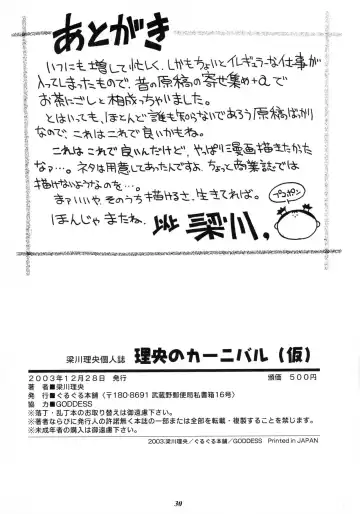 あとがき
いつにも増して忙しく、しかもちょいとイレギュラーな仕事が
入ってしまったもので、昔の原稿の寄せ集め+αで
お茶にごしと相成っちゃいました。
とはいっても、ほとんど誰も知らないであろう原稿ばかり
なので、これはこれで良いかもね。
これはこれで良いんだけど、やっぱり漫画描きたかた
なァ…。ネタは用意してあったんですよ、ちょっと商業誌では
描けないようなのを…。
まァいいや、そのうち描けるさ、生きてれば。
ほんじゃまたね、 梁川
プンポン
梁川理央個人誌 理央のカーニバル(仮)
2003年12月28日 発行 頒価 500円
著 者■梁川理央
発 行■ぐるぐる本舗(〒180-8691 武蔵野郵便局私書箱16号)
協 力■GODDESS
※落丁・乱丁本のお取り替えは御遠慮下さい。
※著者ならびに発行人の許諾無く本誌の一部または全部を転載・複製することを禁じます。
※未成年者の購入は御遠慮下さい。
2003梁川理央/ぐるぐる本舗/GODDESS Printed in JAPAN
30